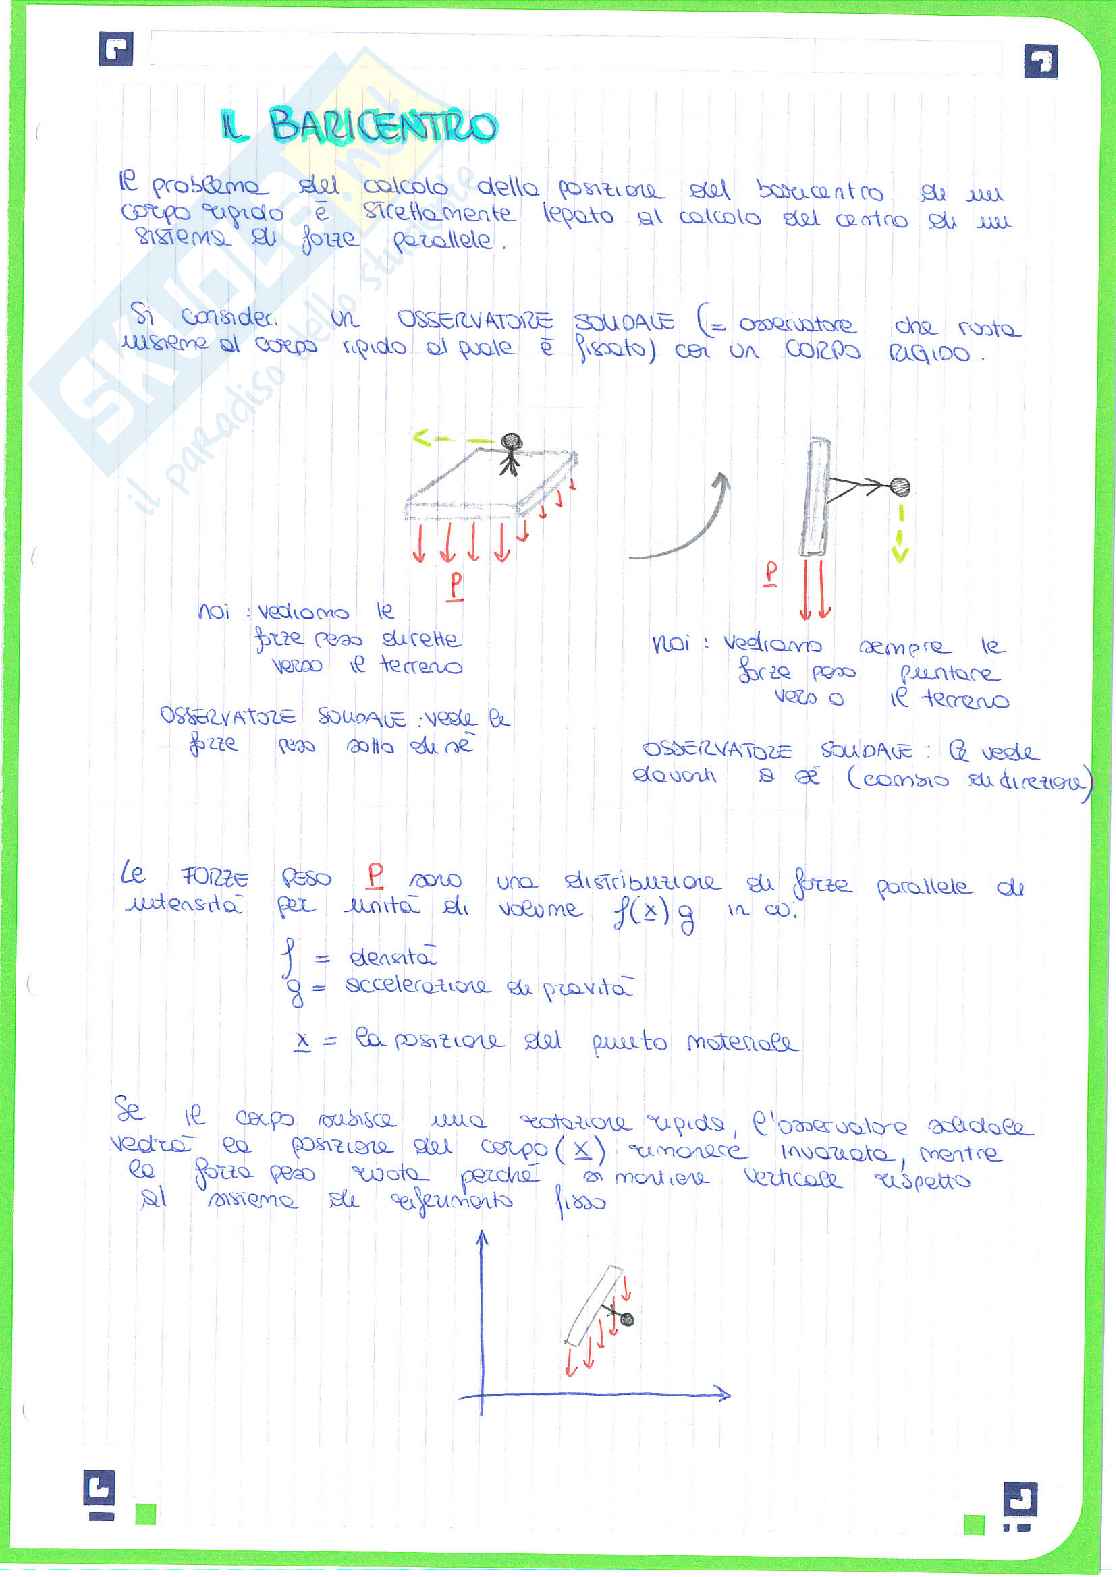 IL BARICENTRO
Il problema del calcolo della posizione del baricentro di un
corpo rigido è strettamente legato al calcolo del centro di un
sistema di forze parallele.
Si consideri un OSSERVATORE SOLIDALE (= osservatore che ruota
insieme al corpo rigido al quale è fissato) con un CORPO RIGIDO.
P
P
noi : vediamo le
forze peso dirette
verso il terreno
OSSERVATORE SOLIDALE : vede le
forze peso sotto di sè
noi : vediamo sempre le
forze peso puntare
verso il terreno
OSSERVATORE SOLIDALE : le vede
davanti a sé (cambio di direzione)
Le FORZE PESO P sono una distribuzione di forze parallele di
intensità per unità di volume ρ(x)g in ω.
ρ = densità
g = accelerazione di gravità
x = la posizione del punto materiale
Se il corpo subisce una rotazione rigida, l'osservatore solidale
vedrà la posizione del corpo (x) rimanere invariata, mentre
la forza peso ruota perché si mantiene verticale rispetto
al sistema di riferimento fisso
SKUOLA.net
il paradiso dello studente